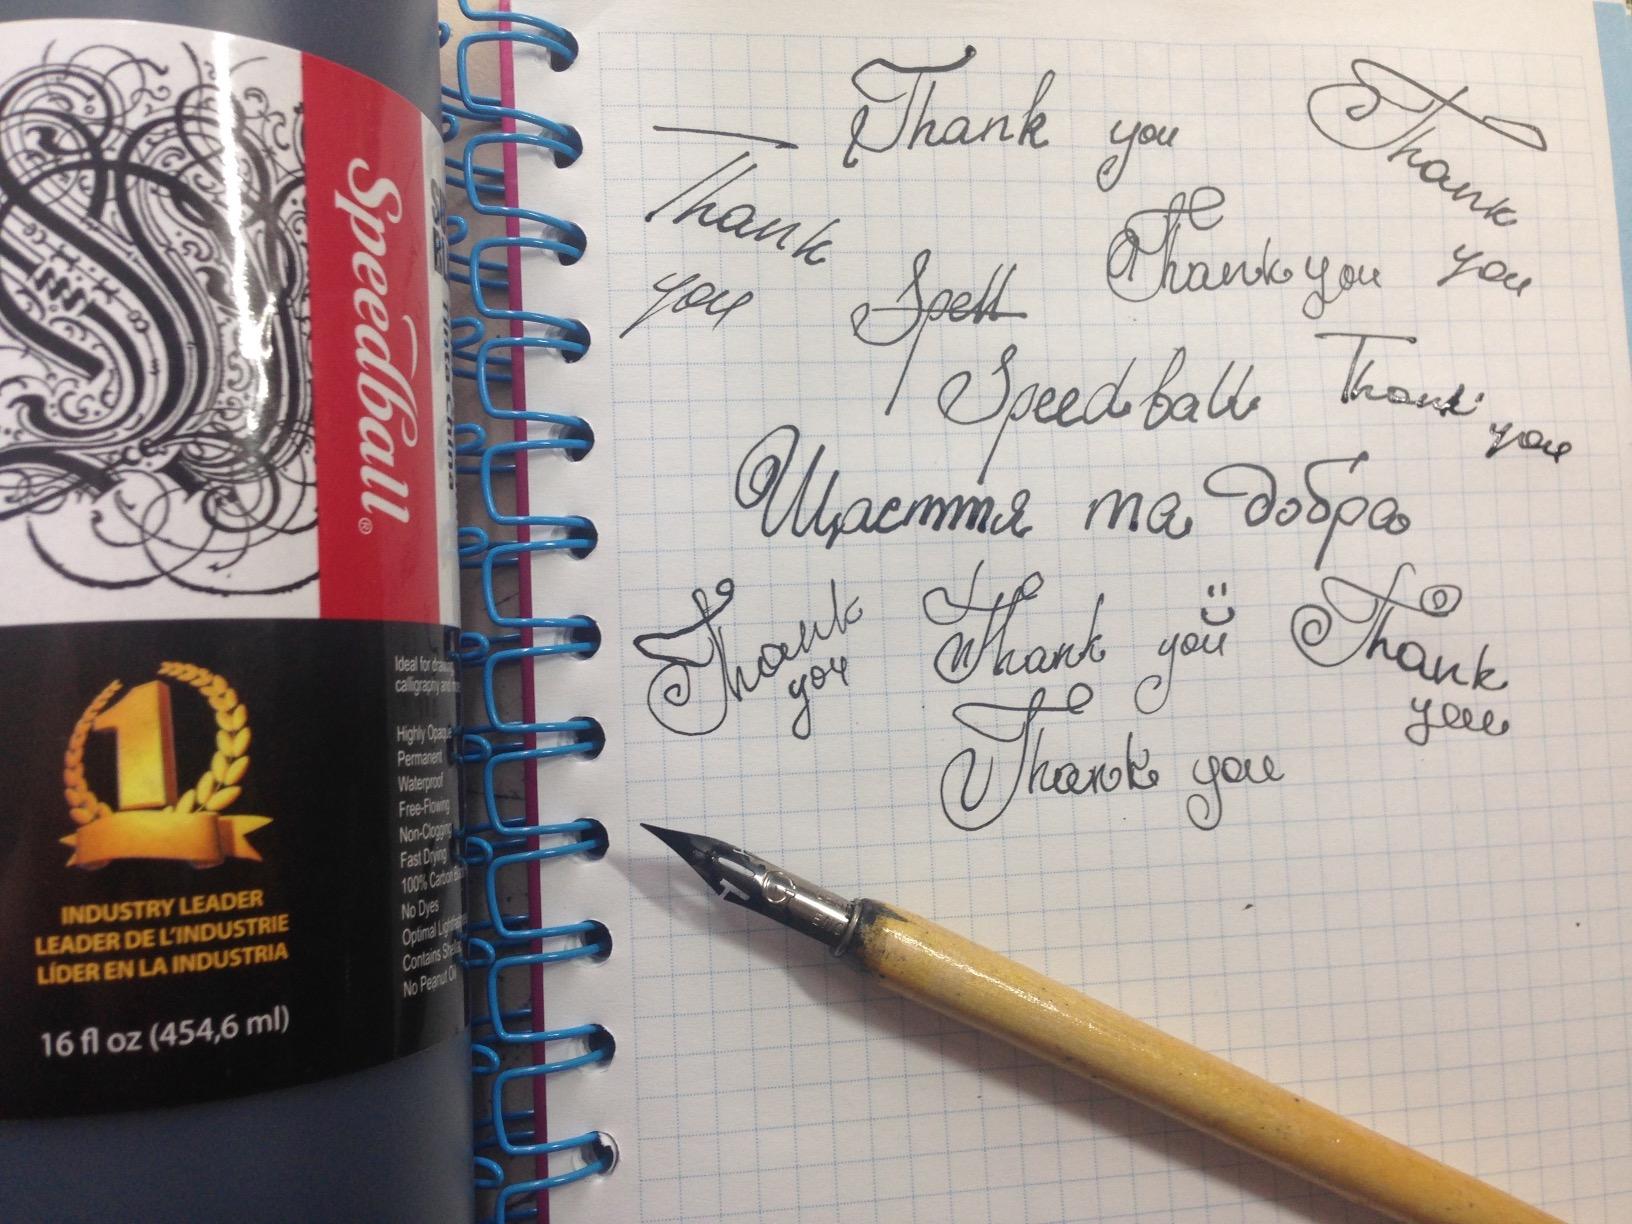 Speedball®
INDUSTRY LEADER
LEADER DE L'INDUSTRIE
LÍDER EN LA INDUSTRIA
16 fl oz (454,6 ml)
Ideal for drawing
calligraphy and
Highly Opaque
Permanent
Waterproof
Free-Flowing
Non-Clogging
Fast Drying
100% Carbon
No Dyes
Optimal
Contains
No Peanut Oil
Thank you
Thank
you
Thank
you
Thank you
Spell
Speedball
Thank
you
Щастття та добра
Thank
you
Thank you
Thank
you
Thank you